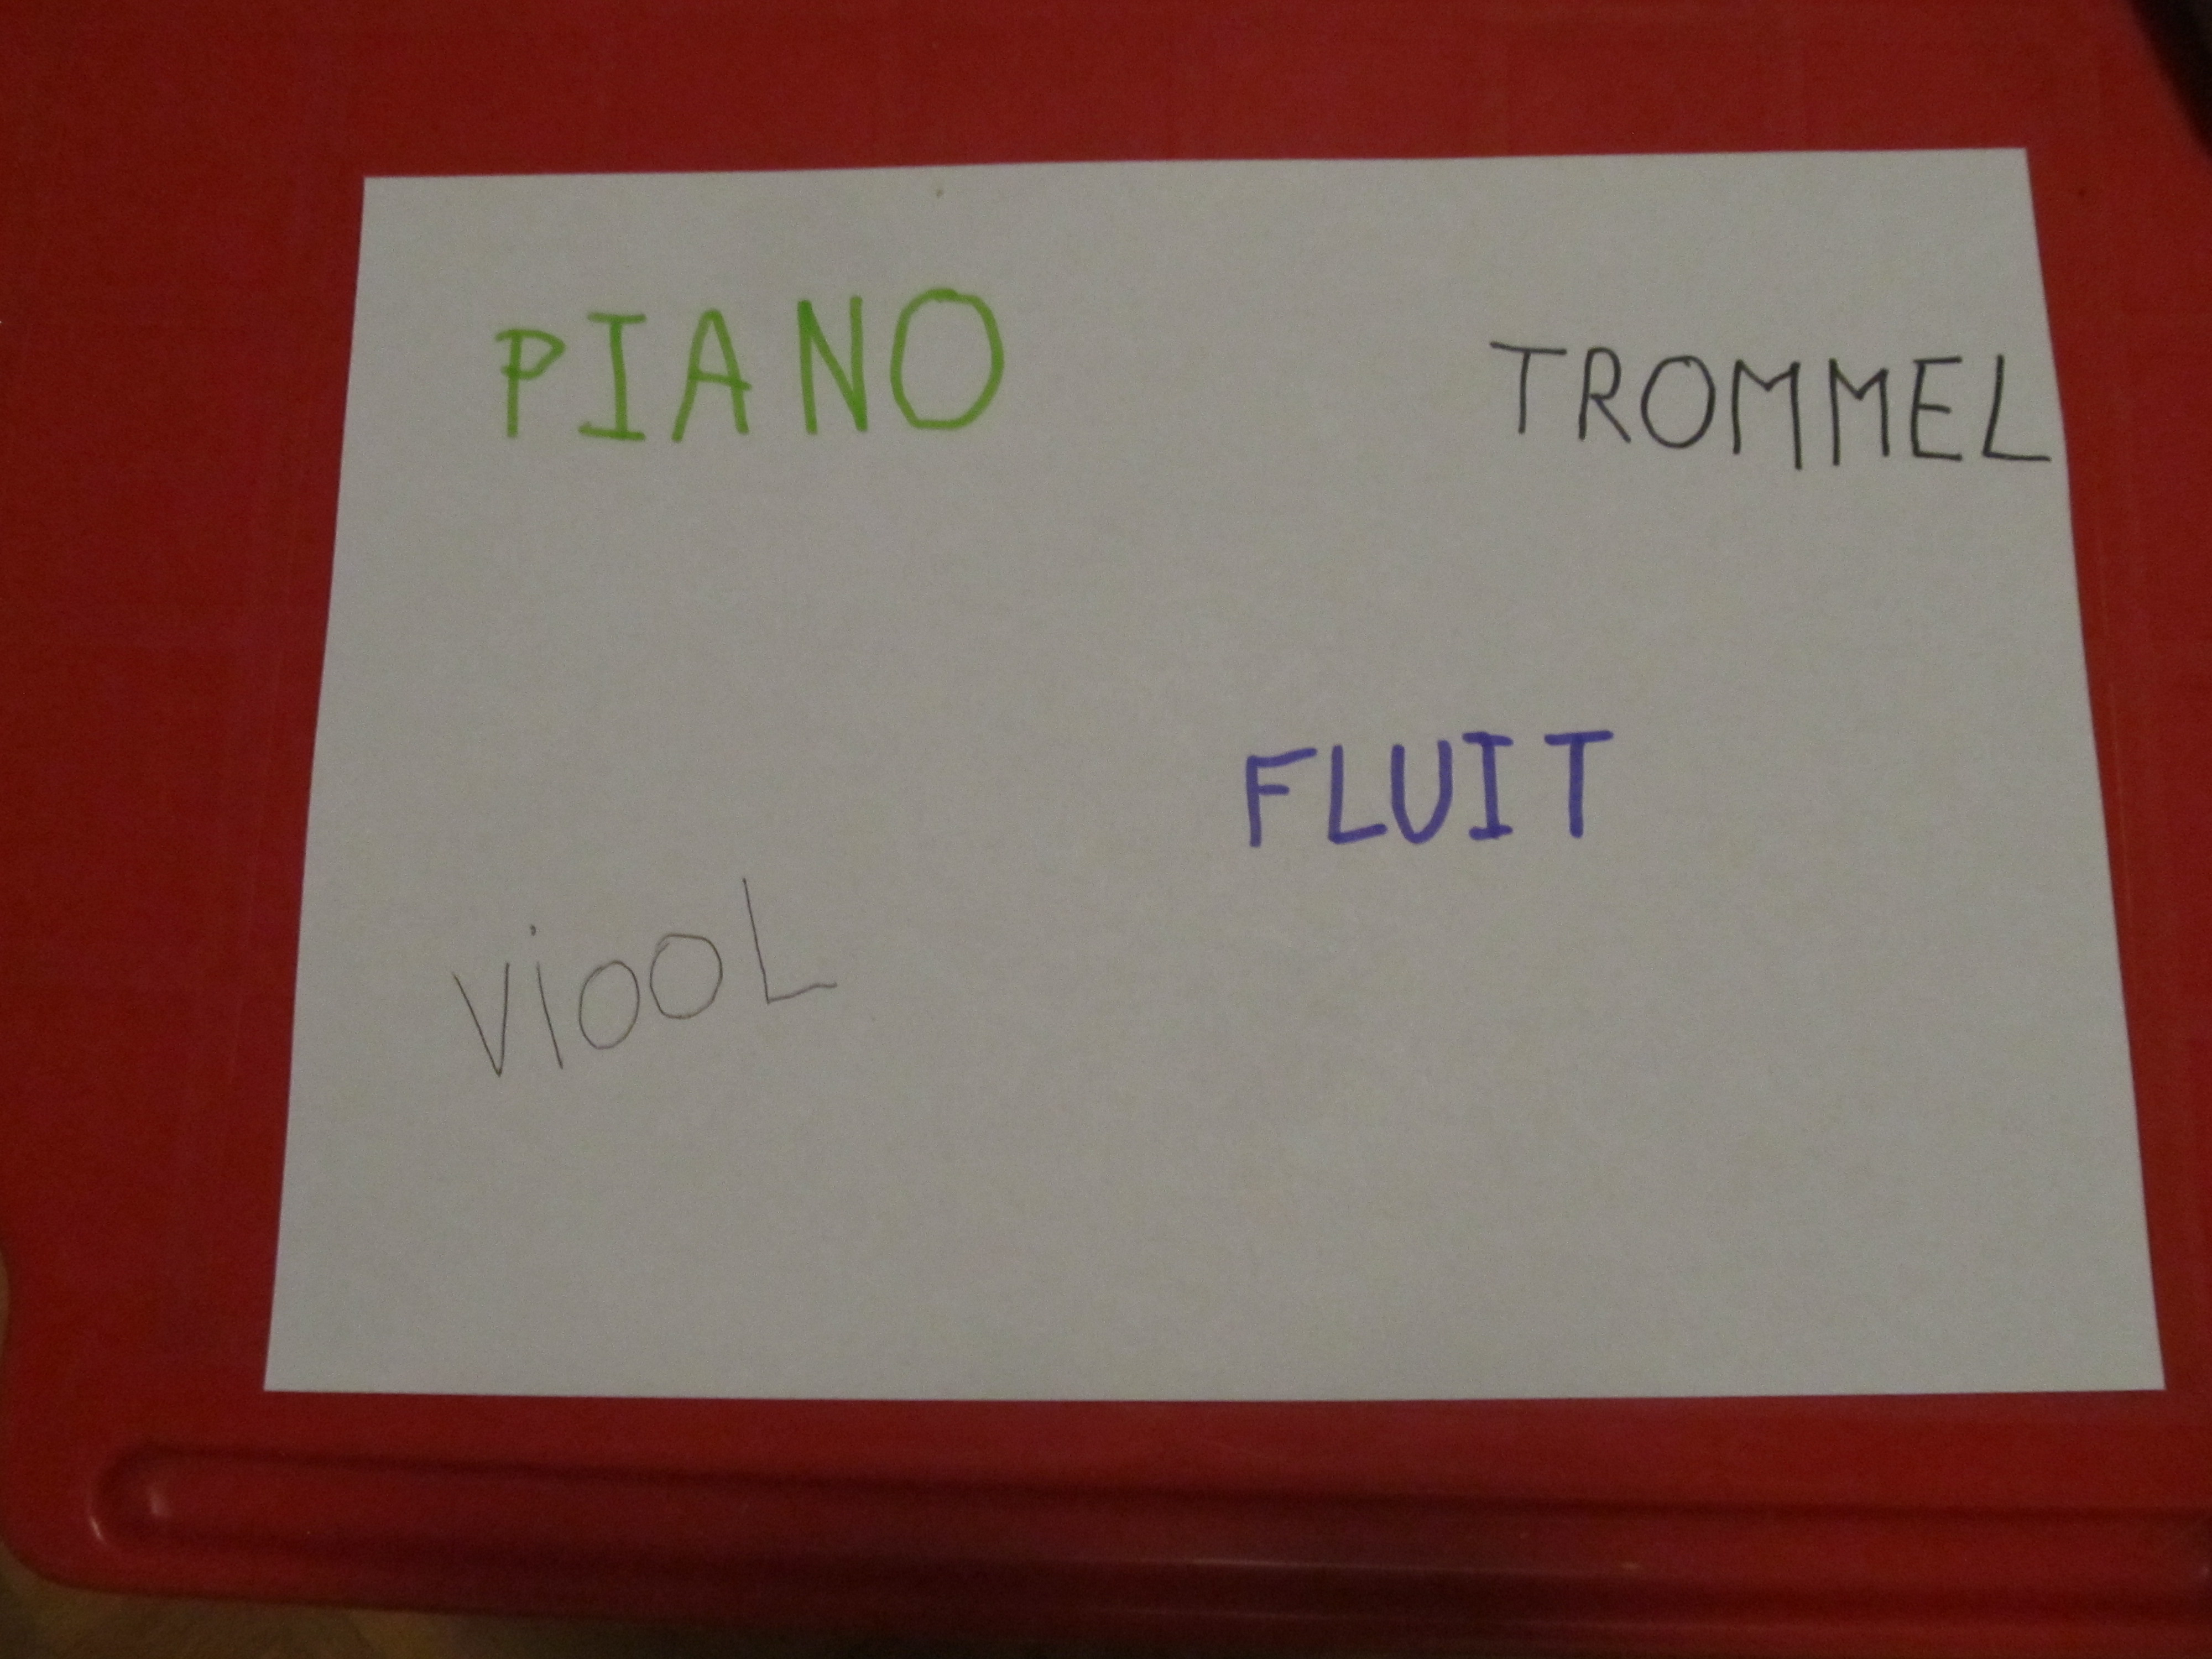 PIANO
TROMMEL
FLUIT
viOOL